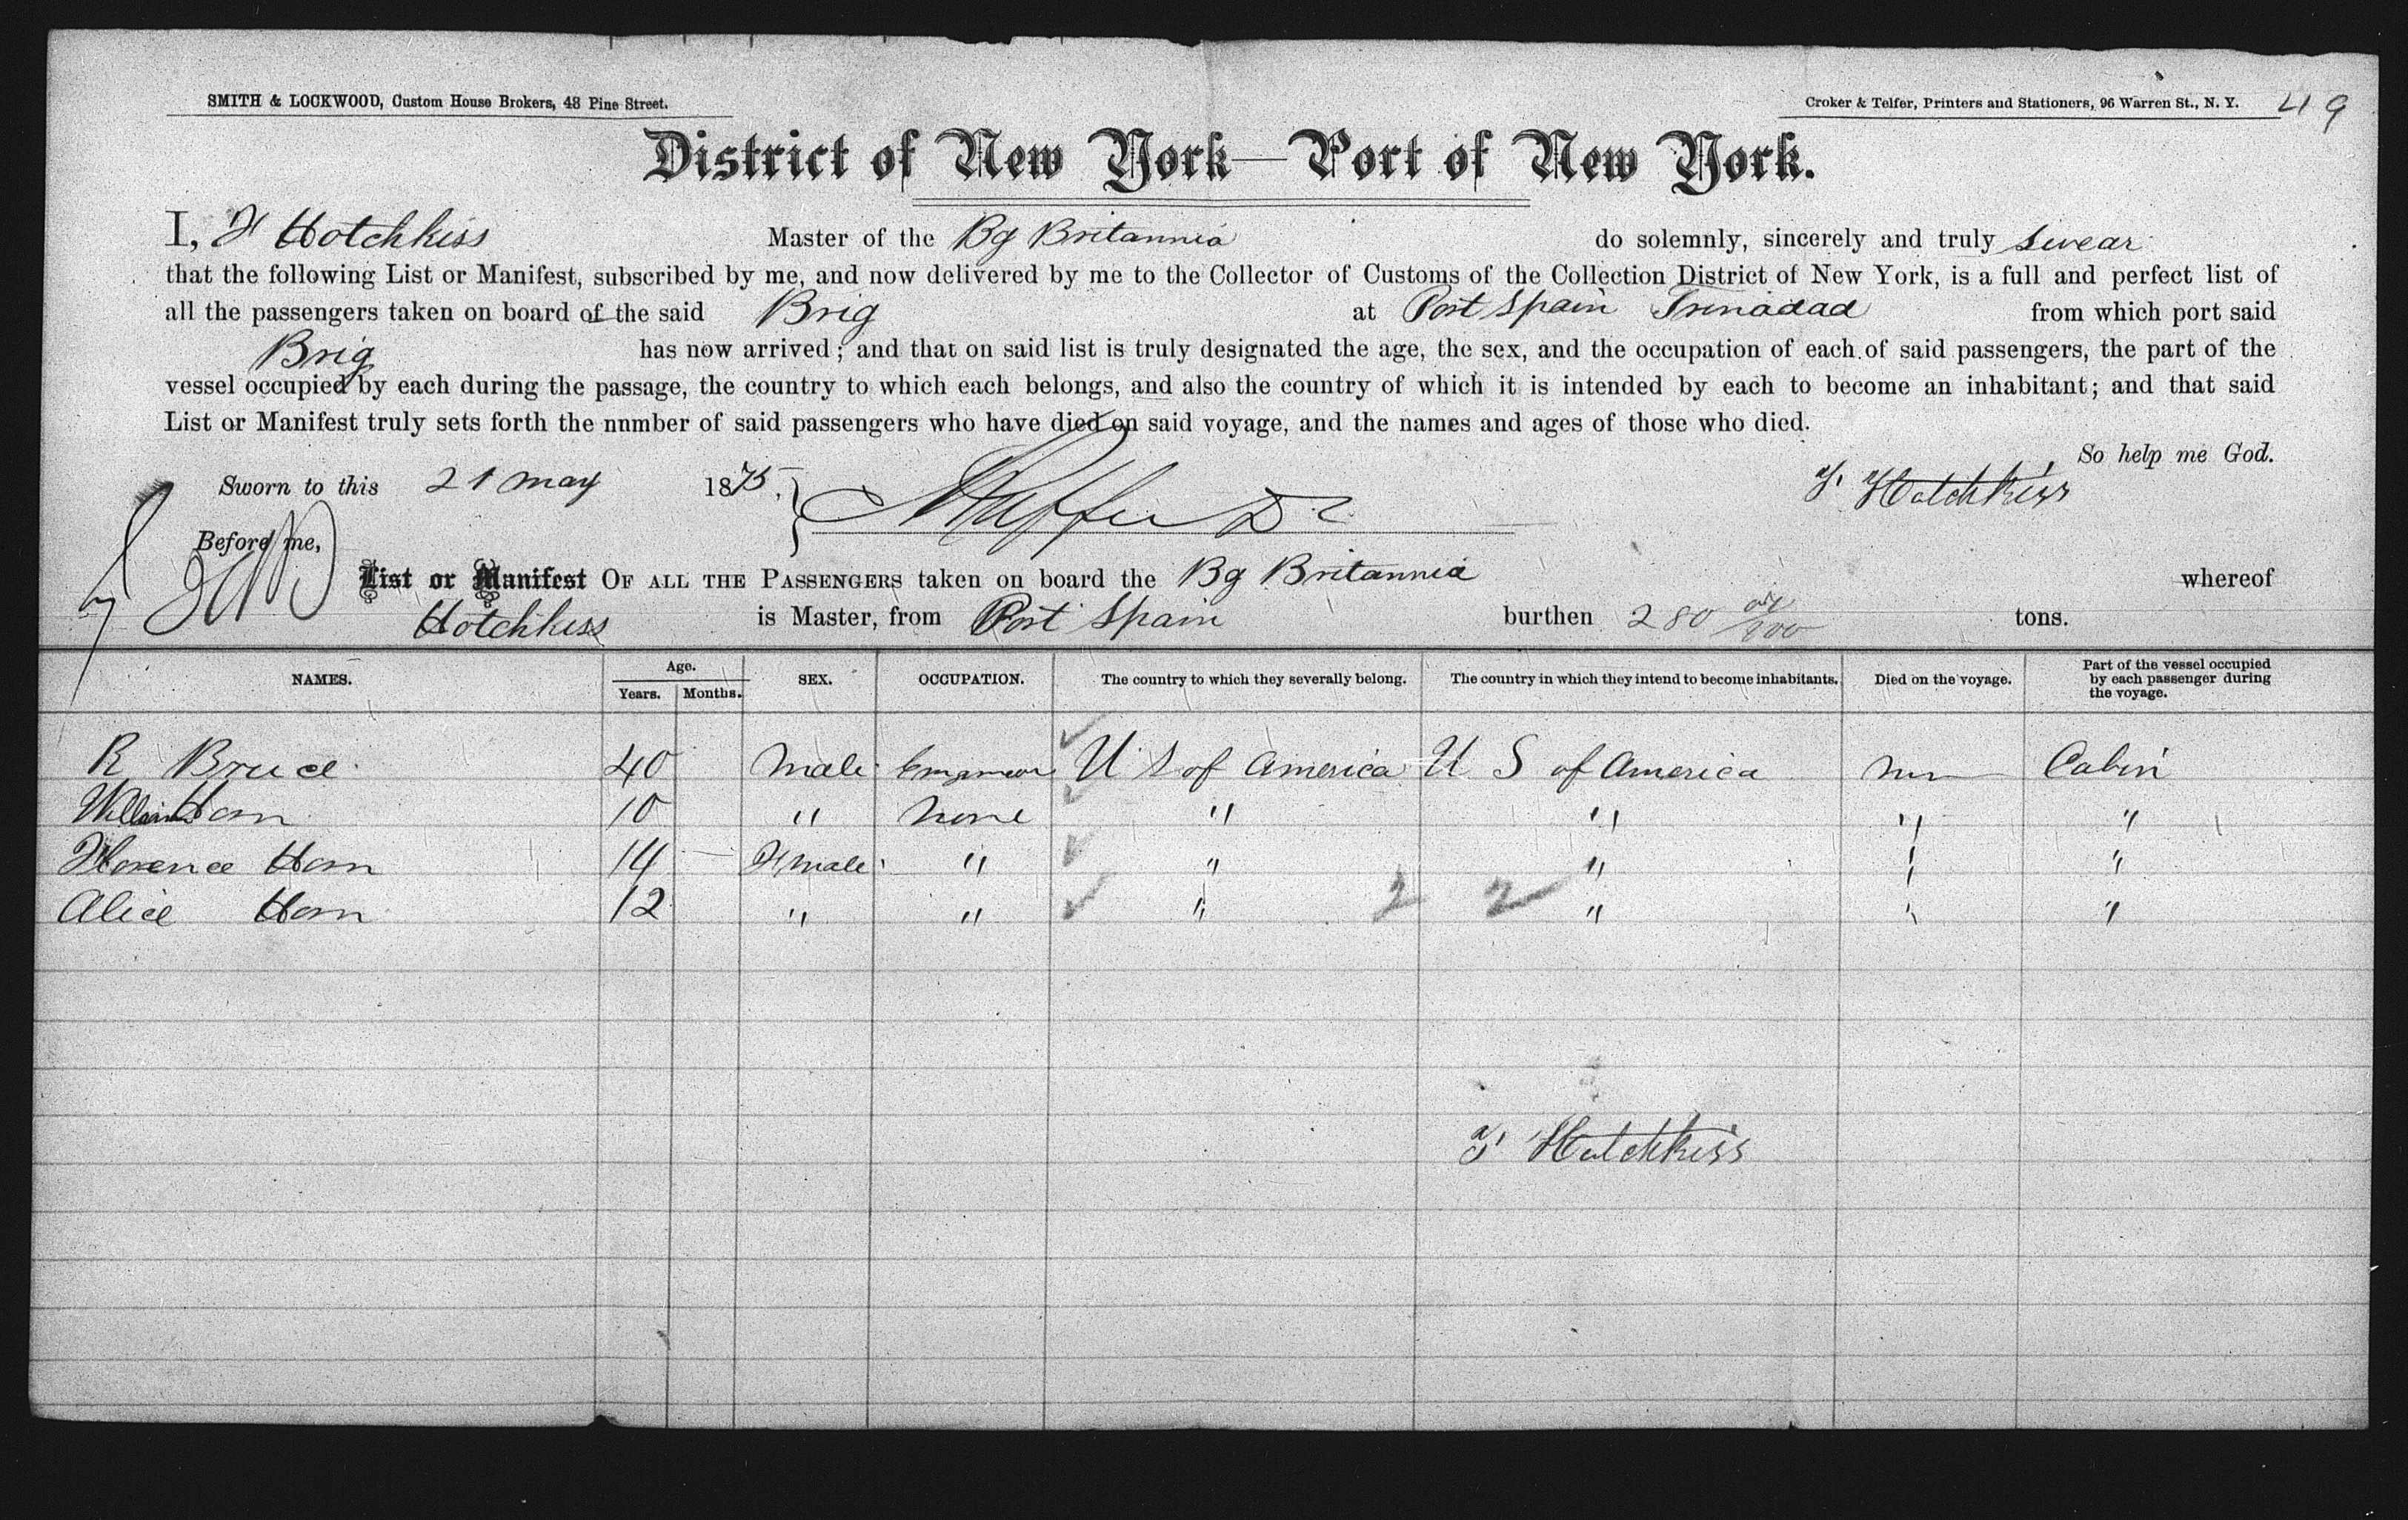 SMITH & LOCKWOOD, Custom House Brokers, 48 Pine Street.
Croker & Telfer, Printers and Stationers, 96 Warren St., N. Y. 49
District of New York—Port of New York.
I, F Hotchkiss Master of the Bg Britannia do solemnly, sincerely and truly swear
that the following List or Manifest, subscribed by me, and now delivered by me to the Collector of Customs of the Collection District of New York, is a full and perfect list of
all the passengers taken on board of the said Brig at Port Spain Trinadad from which port said
Brig has now arrived; and that on said list is truly designated the age, the sex, and the occupation of each of said passengers, the part of the
vessel occupied by each during the passage, the country to which each belongs, and also the country of which it is intended by each to become an inhabitant; and that said
List or Manifest truly sets forth the nnmber of said passengers who have died on said voyage, and the names and ages of those who died.
So help me God.
Sworn to this 21 may 1875. F. Hotchkiss
Before me,
List or Manifest OF ALL THE PASSENGERS taken on board the Bg Britannia whereof
Hotchkiss is Master, from Port Spain burthen 280 tons.
NAMES. Age. Years. Months. SEX. OCCUPATION. The country to which they severally belong. The country in which they intend to become inhabitants. Died on the voyage. Part of the vessel occupied by each passenger during the voyage.
R Bruce 40 Male U S of America U S of America Cabin
William Horn 10 " None " " " "
Florence Horn 14 Female " " " " "
Alice Horn 12 " " " 2 2 " " "
F Hotchkiss